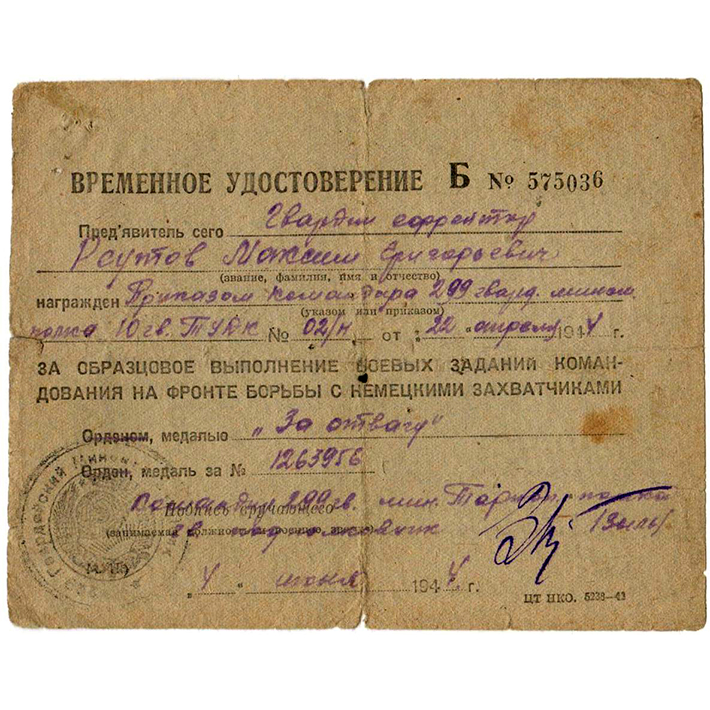 ВРЕМЕННОЕ УДОСТОВЕРЕНИЕ Б № 575036
Пред'явитель сего Гвардии ефрейтор
Максим Григорьевич
(звание, фамилия, имя и отчество)
награжден Приказом командира 299 гвард. мином.
(указом или приказом)
полка 10 гв. ТУДК № 02/н от "22" апреля 1944 г.
ЗА ОБРАЗЦОВОЕ ВЫПОЛНЕНИЕ БОЕВЫХ ЗАДАНИЙ КОМАН-
ДОВАНИЯ НА ФРОНТЕ БОРЬБЫ С НЕМЕЦКИМИ ЗАХВАТЧИКАМИ
Орденом, медалью „За отвагу"
Орден, медаль за № 1263956
Командир 299 гв. мин.
Подпись вручающего
гв. подполковник
"4" июня 1944 г.
ЦТ НКО. 5238—43